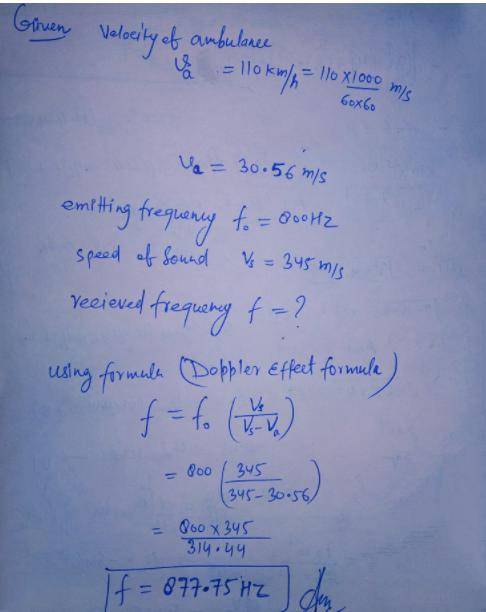 Given Velocity of ambulance
Va = 110 km/h = 110 x 1000 / 60x60 m/s
Va = 30.56 m/s
emitting frequency f₀ = 800 Hz
speed of sound Vs = 345 m/s
recieved frequency f = ?
using formula (Doppler Effect formula)
f = f₀ (Vs / Vs - Va)
= 800 (345 / 345 - 30.56)
= 800 x 345 / 314.44
f = 877.75 Hz Ans